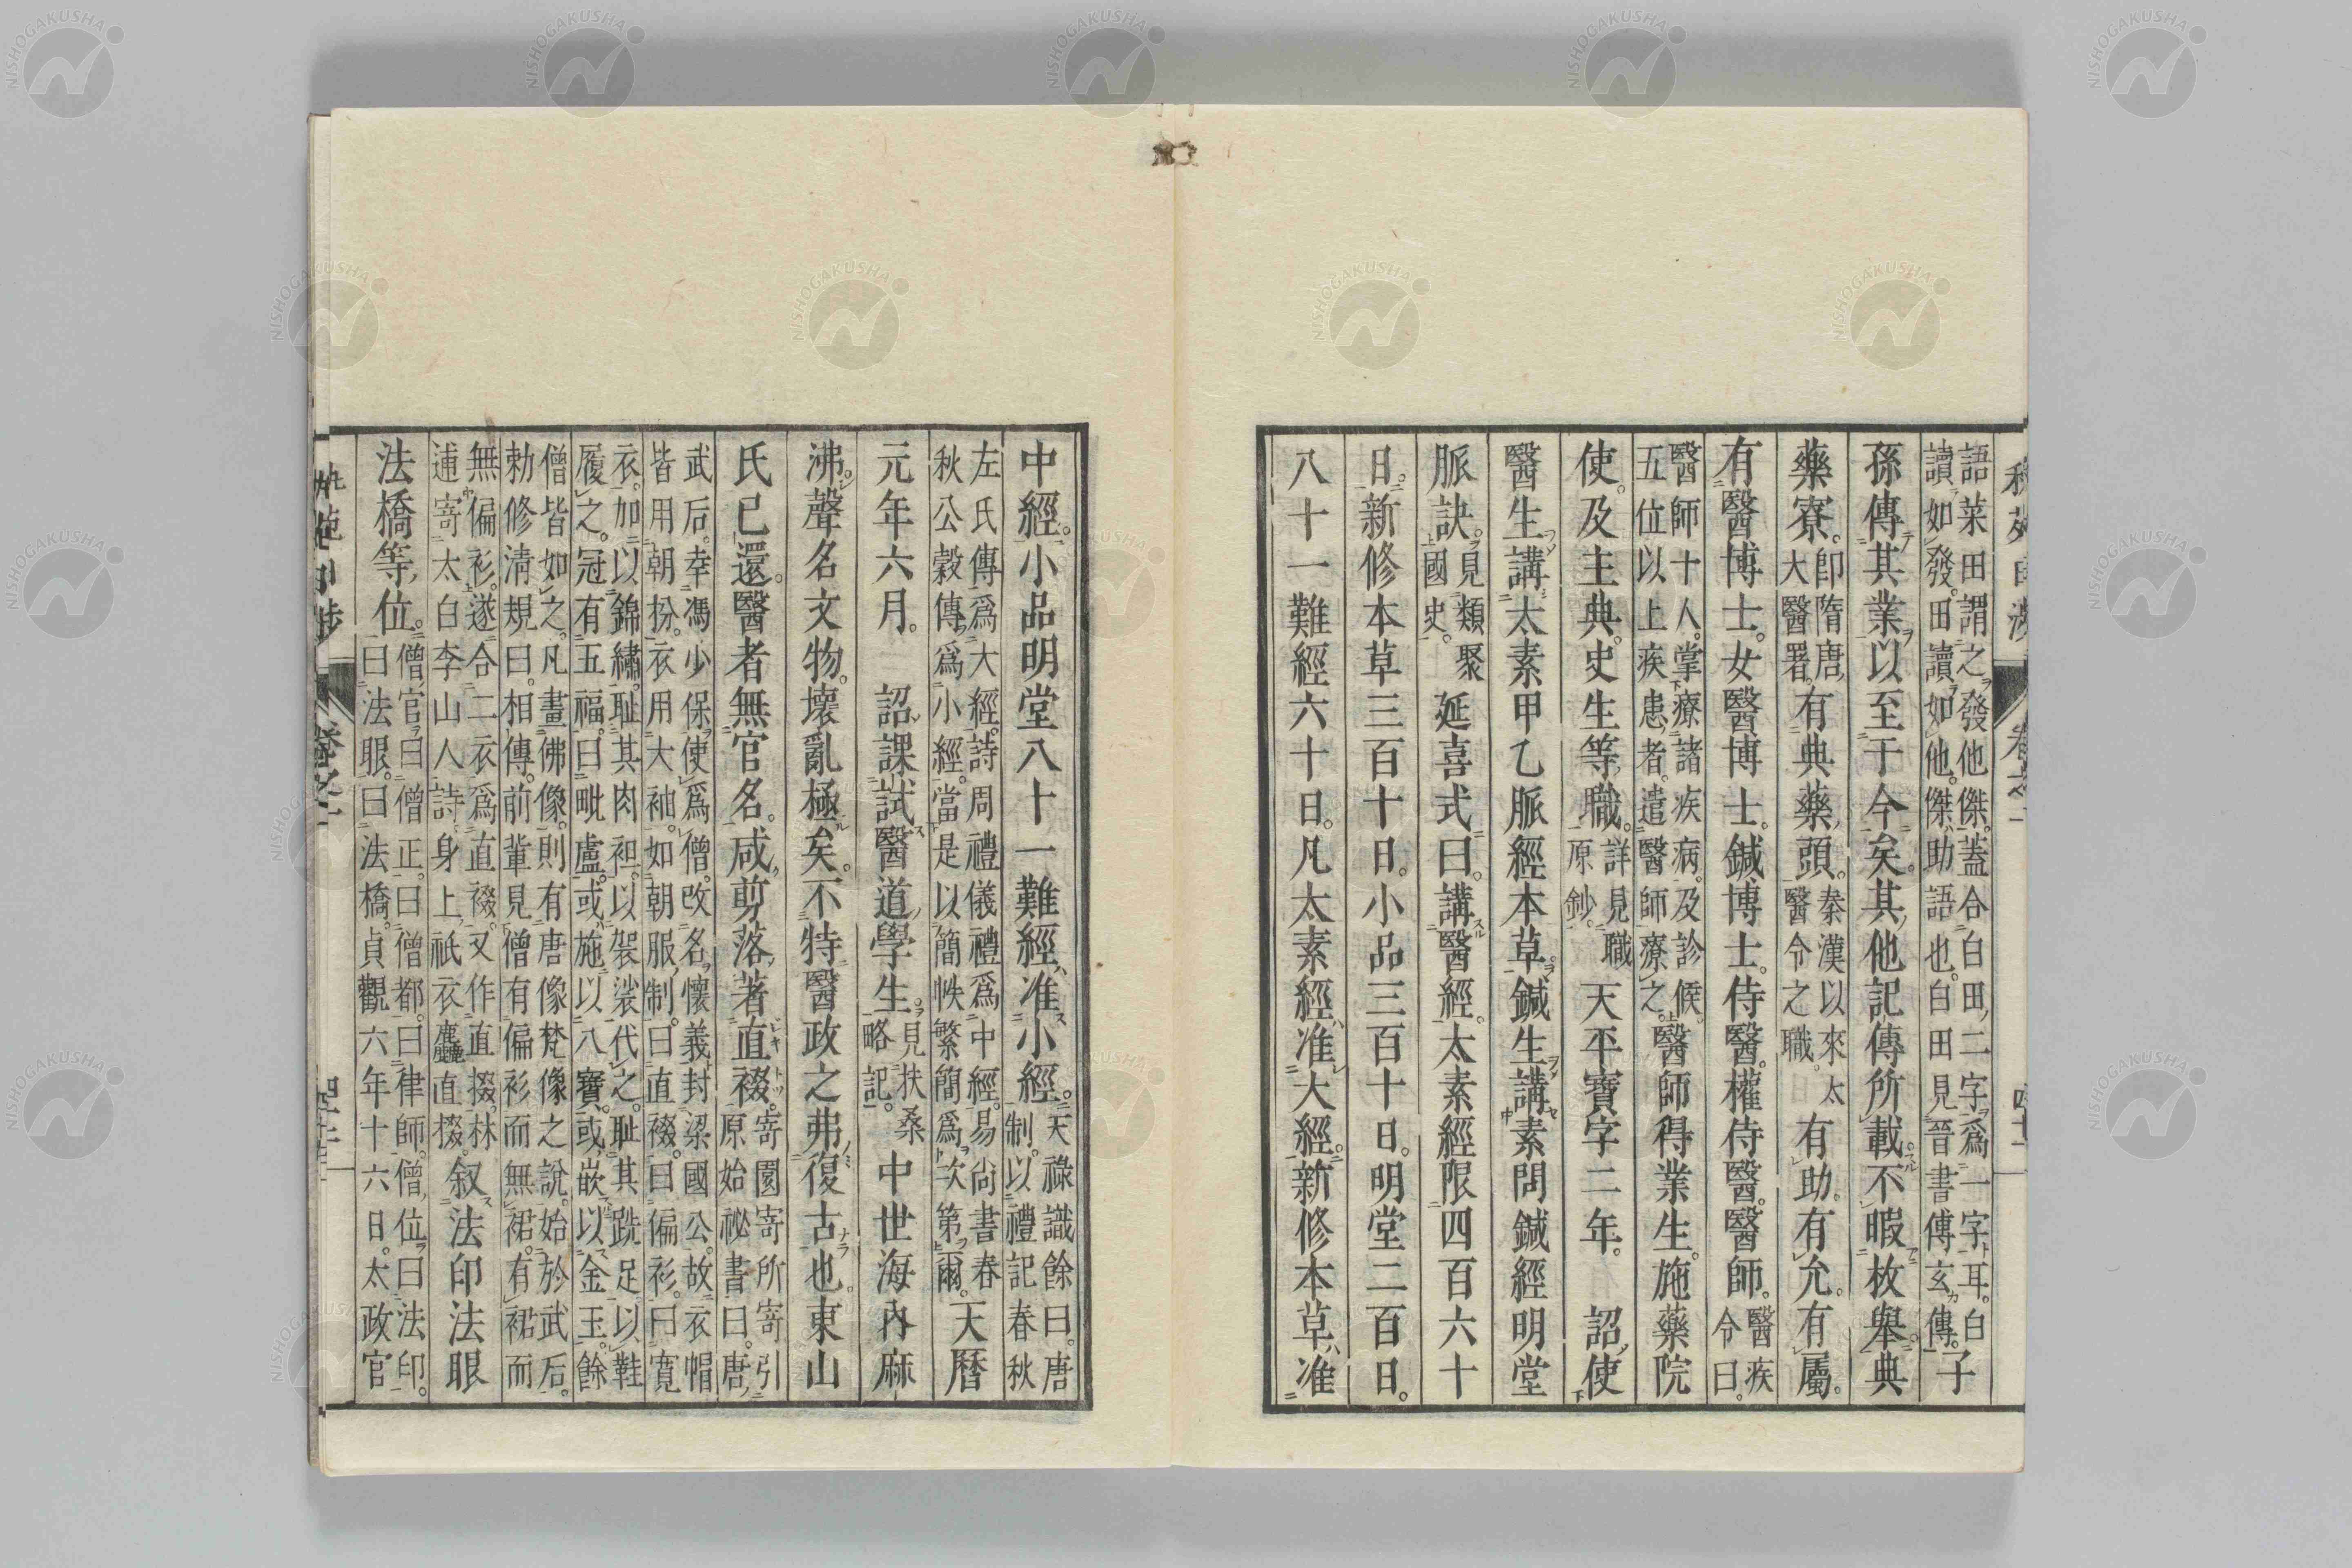 語菜田謂之發他傑。蓋合白田二字爲一字耳。白
讀如發。田讀如他。傑助語也。白田見晉書傅玄傳。子
孫傳其業以至于今矣。其他記傳所載不暇枚舉。典
藥寮。卽隋唐大醫署。有典藥頭。秦漢以來太醫令之職。有助。有允。有屬。
有醫博士。女醫博士。鍼博士。侍醫。權侍醫。醫師。醫疾令曰。
醫師十人。掌療諸疾病。及診候。
五位以上疾患者。遣醫師療之。醫師得業生。施藥院
使。及主典。史生等職。詳見職原鈔。天平寶字二年。詔使
醫生講太素甲乙脈經本草。鍼生講素問鍼經明堂
脈訣。見類聚國史。延喜式曰。講醫經。太素經限四百六十
日。新修本草三百十日。小品三百十日。明堂二百日。
八十一難經六十日。凡太素經准大經。新修本草准
中經。小品明堂八十一難經准小經。天祿識餘曰。唐制。以禮記春秋
左氏傳爲大經。詩周禮儀禮爲中經。易尙書春
秋公穀傳爲小經。當是以簡帙繁簡爲次第爾。天曆
元年六月。詔課試醫道學生。見扶桑略記。中世海內麻
沸。聲名文物。壞亂極矣。不特醫政之弗復古也。東山
氏已還。醫者無官名。咸剪落著直裰。寄園寄所寄引原始祕書曰。唐
武后。幸馮少保。使爲僧。改名懷義。封梁國公。故衣帽
皆用朝扮。衣用大袖。如朝服制。曰直裰。曰偏衫。曰寬
衣。加以錦繡。耻其肉袒。以袈裟代之。耻其跣足。以鞋
履之。冠有五福。曰毗盧。或施以八寶。或嵌以金玉。餘
僧皆如之。凡畫佛像。則有唐像梵像之說。始於武后。
勅修淸規曰。相傳。前輩見僧有偏衫而無裙。有裙而
無偏衫。遂合二衣爲直裰。又作直掇。林
逋寄太白李山人詩。身上祇衣麤直掇。叙法印法眼
法橋等位。僧官。曰僧正。曰僧都。曰律師。僧位。曰法印。
曰法眼。曰法橋。貞觀六年十六日。太政官